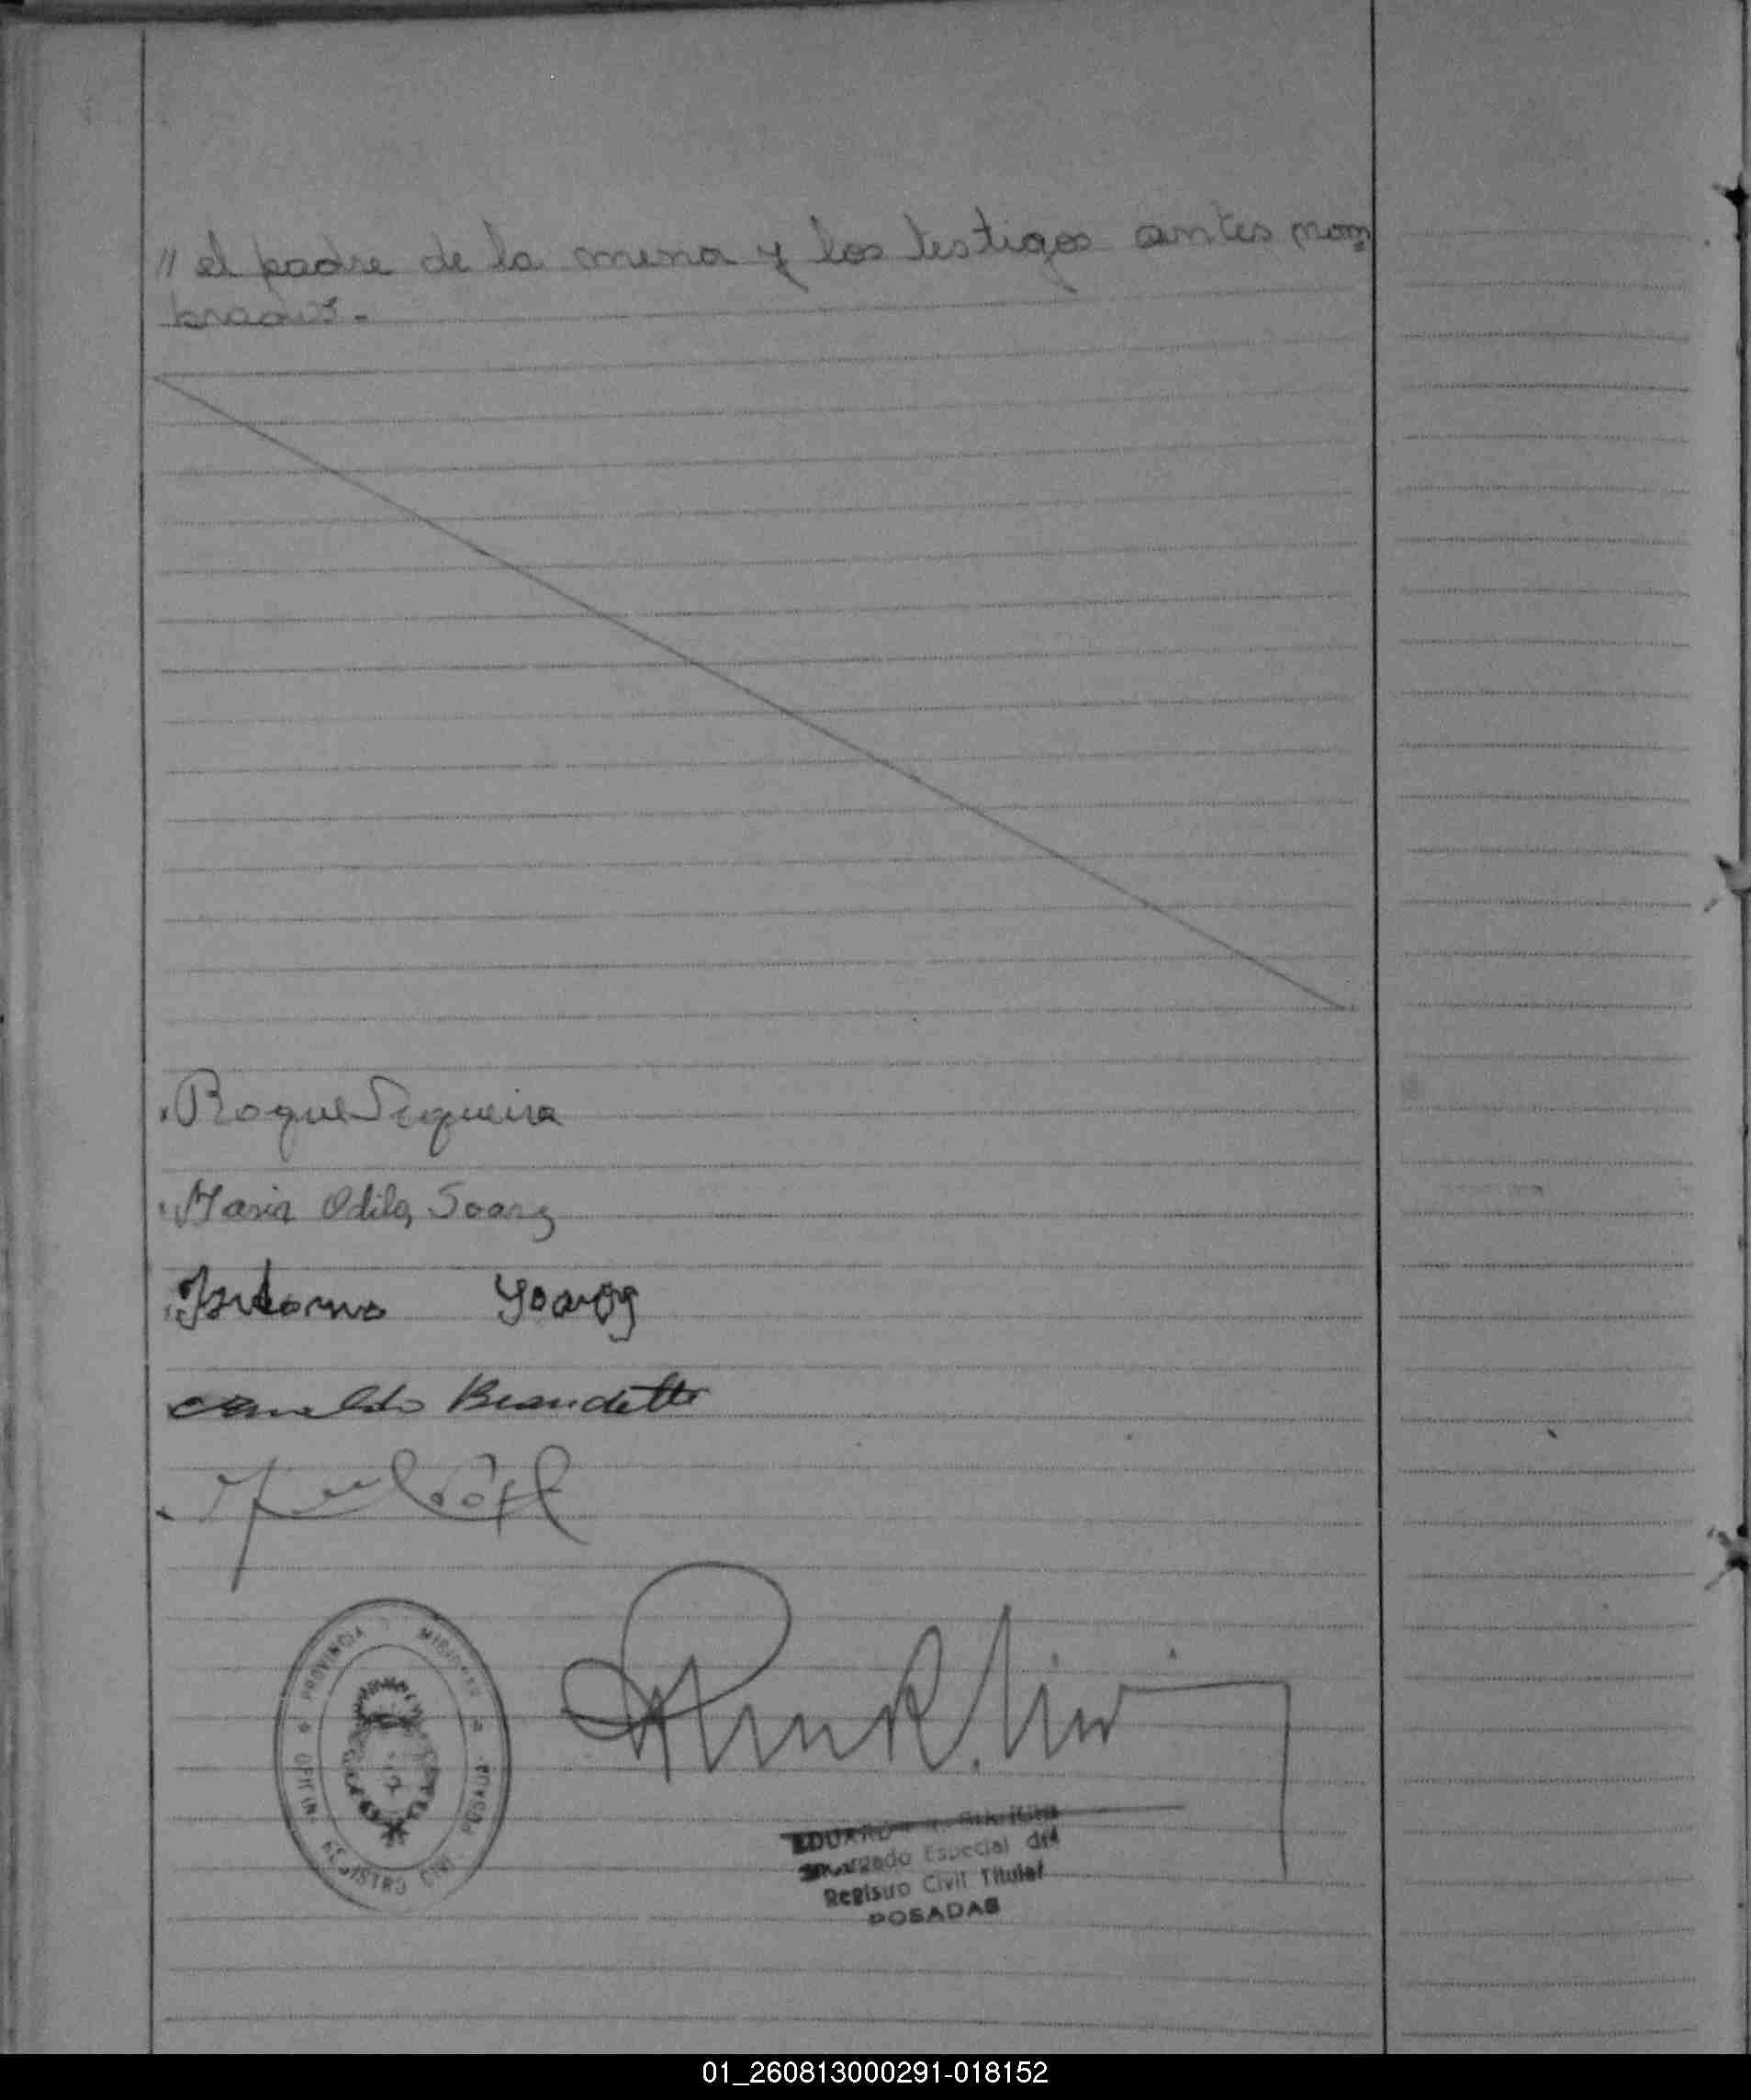 // el padre de la mena y los testigos antes nom
brados.-
Roque Sequeira
Maria Odila Soarez
Antonio Soarez
PROVINCIA MISIONES
OFICINA REGISTRO CIVIL POSADAS
EDUARDO
Encargado Especial del
Registro Civil Titular
POSADAS
01_260813000291-018152